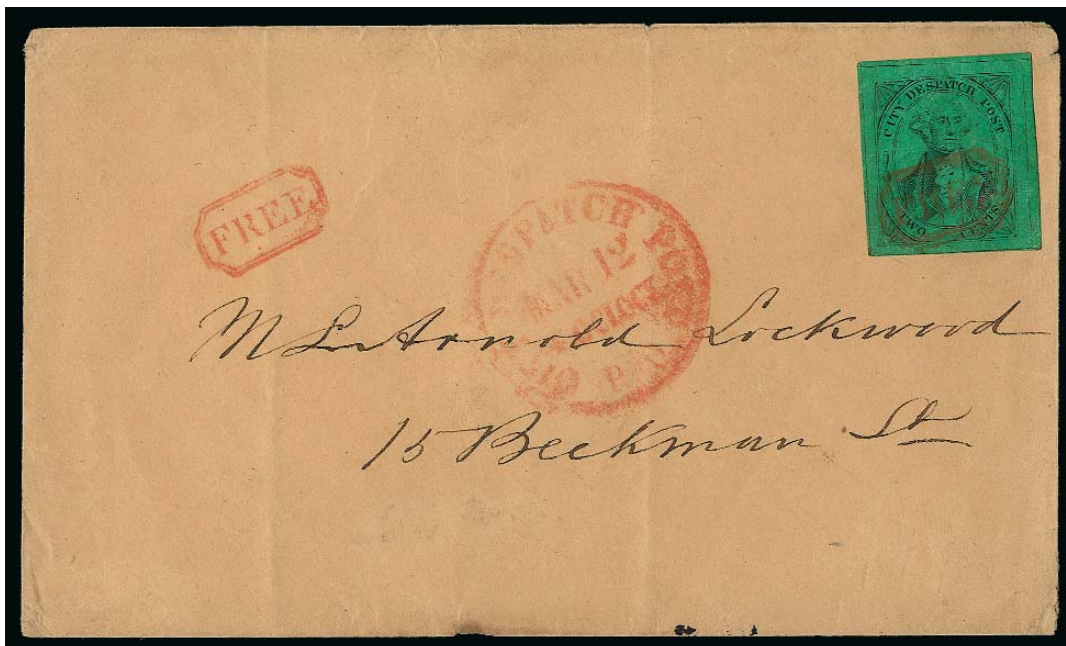 CITY DESPATCH POST
TWO CENTS
FREE
DESPATCH POST
MAR 12
PAID
M L Arnold Lockwood
15 Beekman St